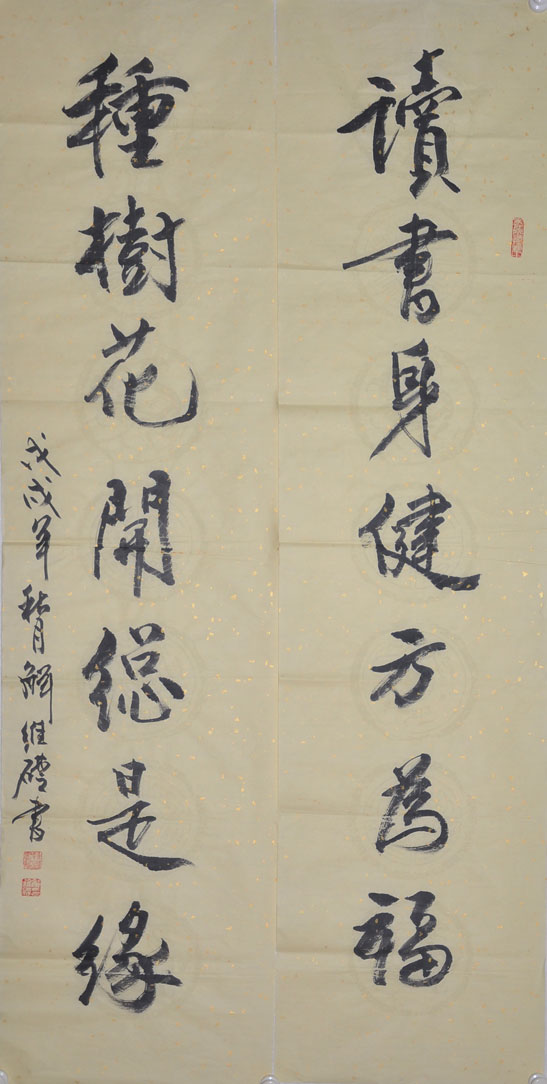 讀書身健方為福
種樹花開總是緣
戊戌年秋月解維礎書